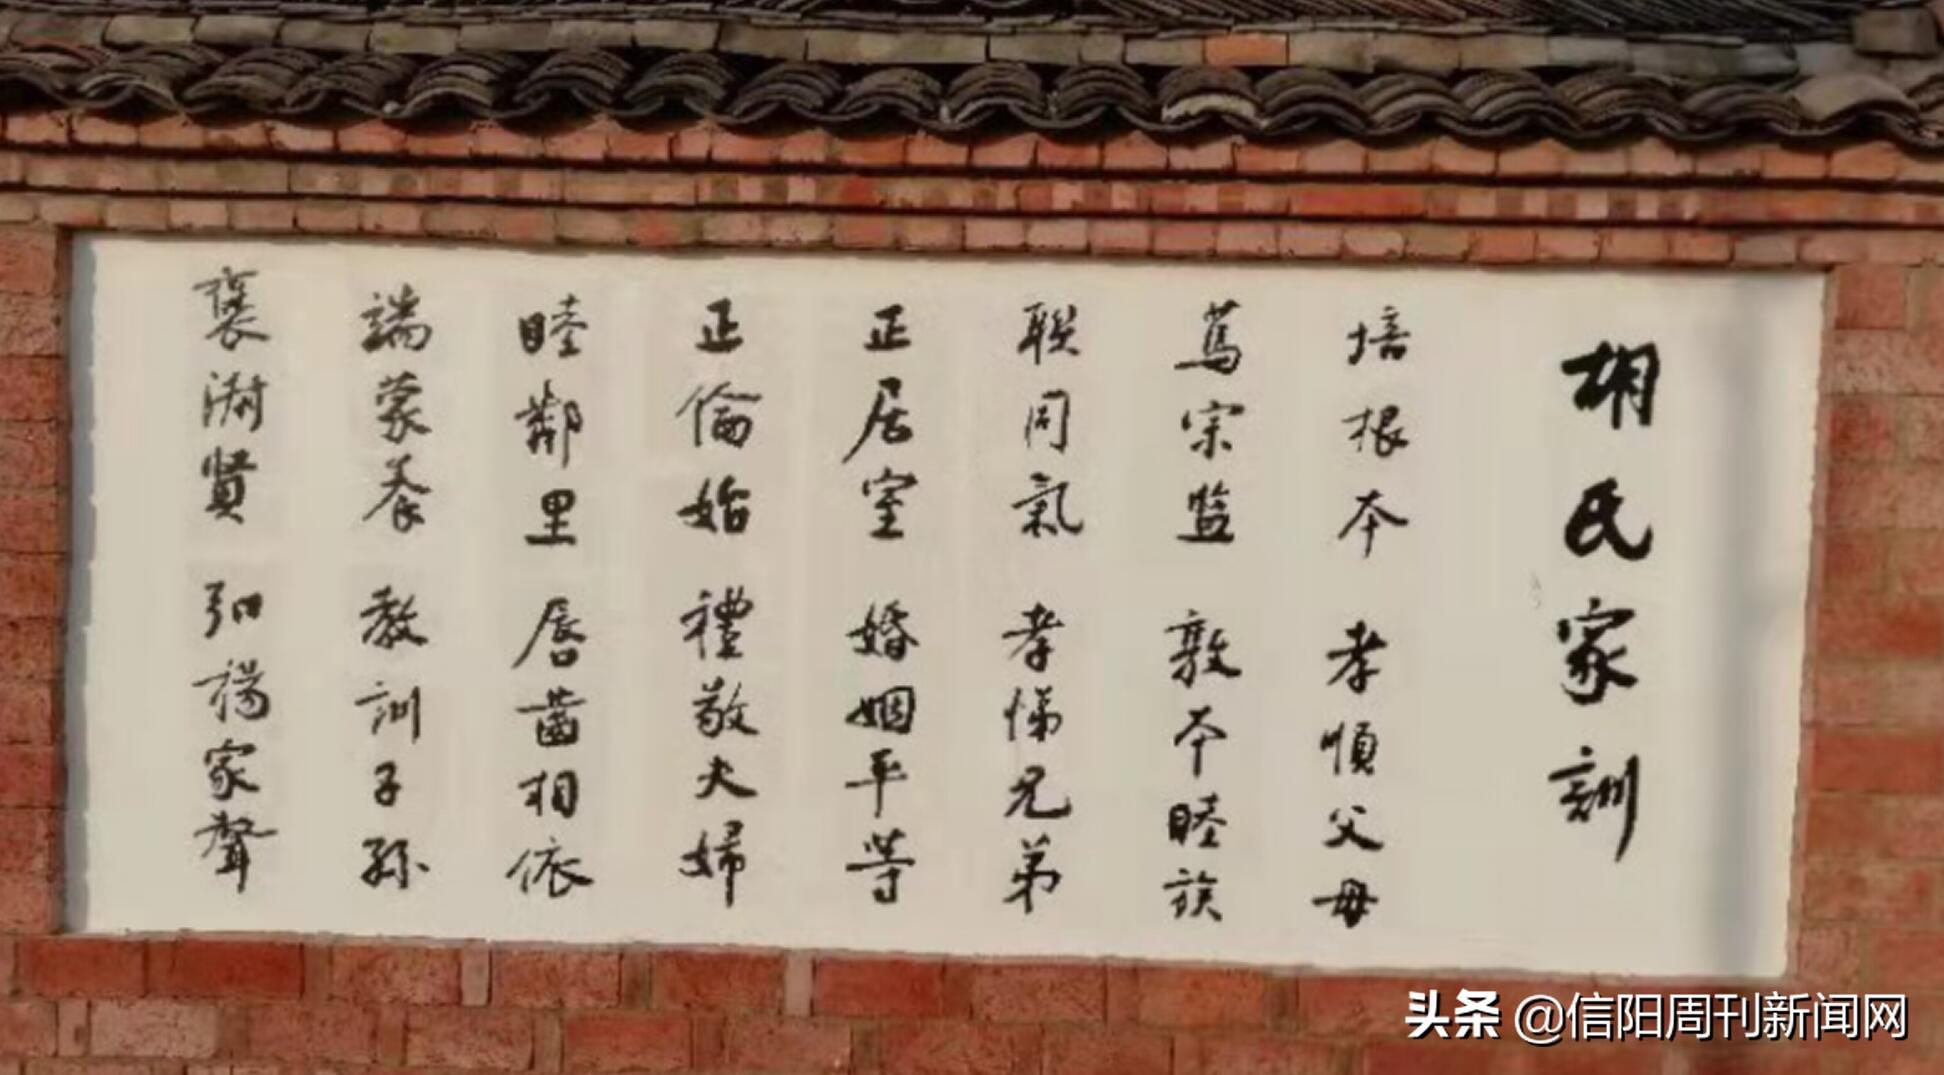 胡氏家訓
培根本 孝順父母
篤宗监 敦本睦族
聯同氣 孝悌兄弟
正居室 婚姻平等
正倫始 禮敬夫婦
睦鄰里 唇齒相依
端蒙養 教訓子孫
賢 弘揚家聲
头条 @信阳周刊新闻网